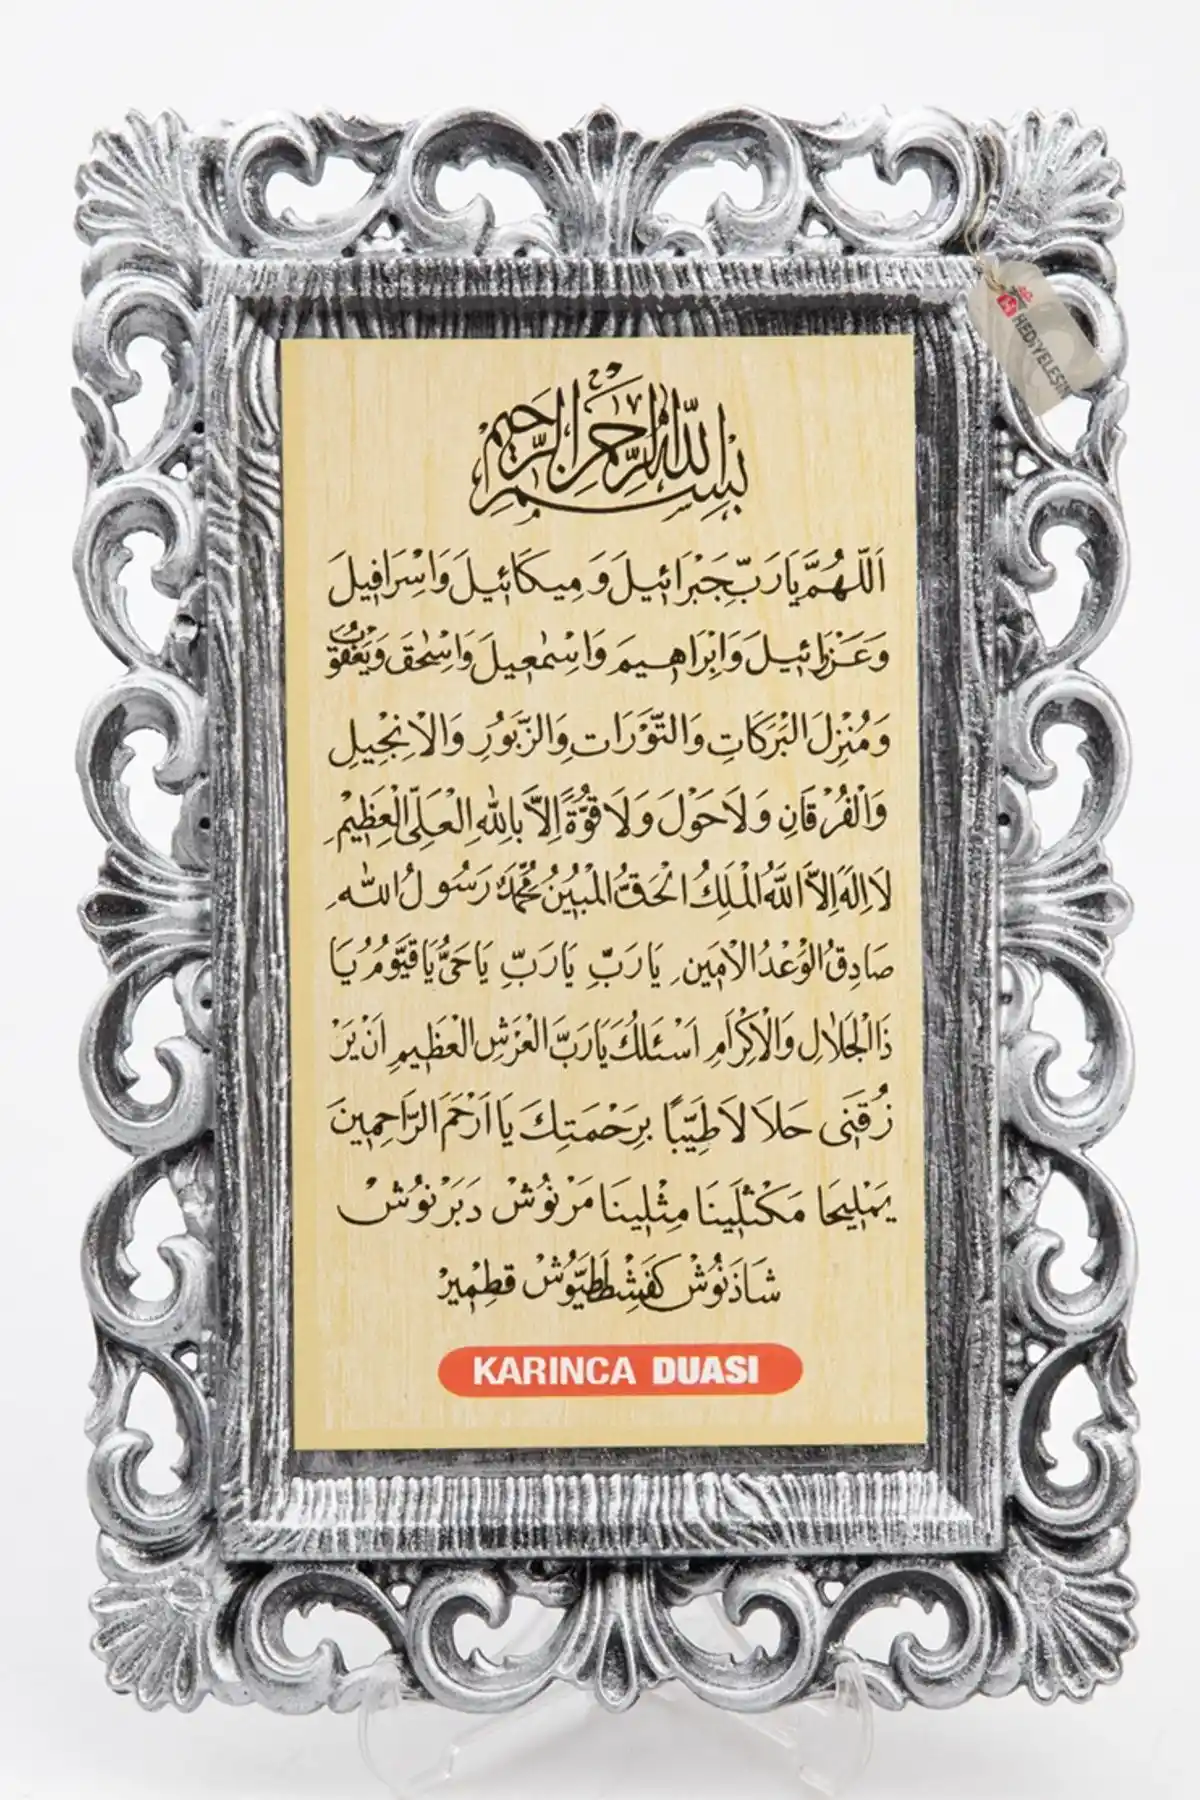 بسم الله الرحمن الرحيم
اَللّٰهُمَّ يَا رَبَّ جَبْرَائِيلَ وَ مِيكَائِيلَ وَاِسْرَافِيلَ
وَعَزْرَائِيلَ وَاِبْرَاهِيمَ وَاِسْمٰعِيلَ وَاِسْحٰقَ وَيَعْقُوبَ
وَمُنْزِلَ الْبَرَكَاتِ وَالتَّوْرَاتِ وَالزَّبُورِ وَالْاِنْجِيلِ
وَالْفُرْقَانِ وَلَا حَوْلَ وَلَا قُوَّةَ اِلَّا بِاللهِ الْعَلِىِّ الْعَظِيمِ
لَا اِلٰهَ اِلَّا اللّٰهُ الْمَلِكُ الْحَقُّ الْمُبِينُ مُحَمَّدٌ رَسُولُ اللهِ
صَادِقُ الْوَعْدُ الْاَمِينِ يَا رَبِّ يَا رَبِّ يَا حَىُّ يَا قَيُّومُ يَا
ذَا الْجَلَالِ وَالْاِكْرَامِ اَسْئَلُكَ يَا رَبَّ الْعَرْشِ الْعَظِيمِ اَنْ يَرْ
زُقَنِى حَلَا لَا طَيِّبًا بِرَحْمَتِكَ يَا اَرْحَمَ الرَّاحِمِينَ
يَمْلِيخَا مَكْثَلِينَا مِثْلِينَا مَرْنُوشْ دَبَرْنُوشْ
شَاذَنُوشْ كَفَشْطَطَيُّوشْ قِطْمِيرْ
KARINCA DUASI
HEDİYELEŞİN